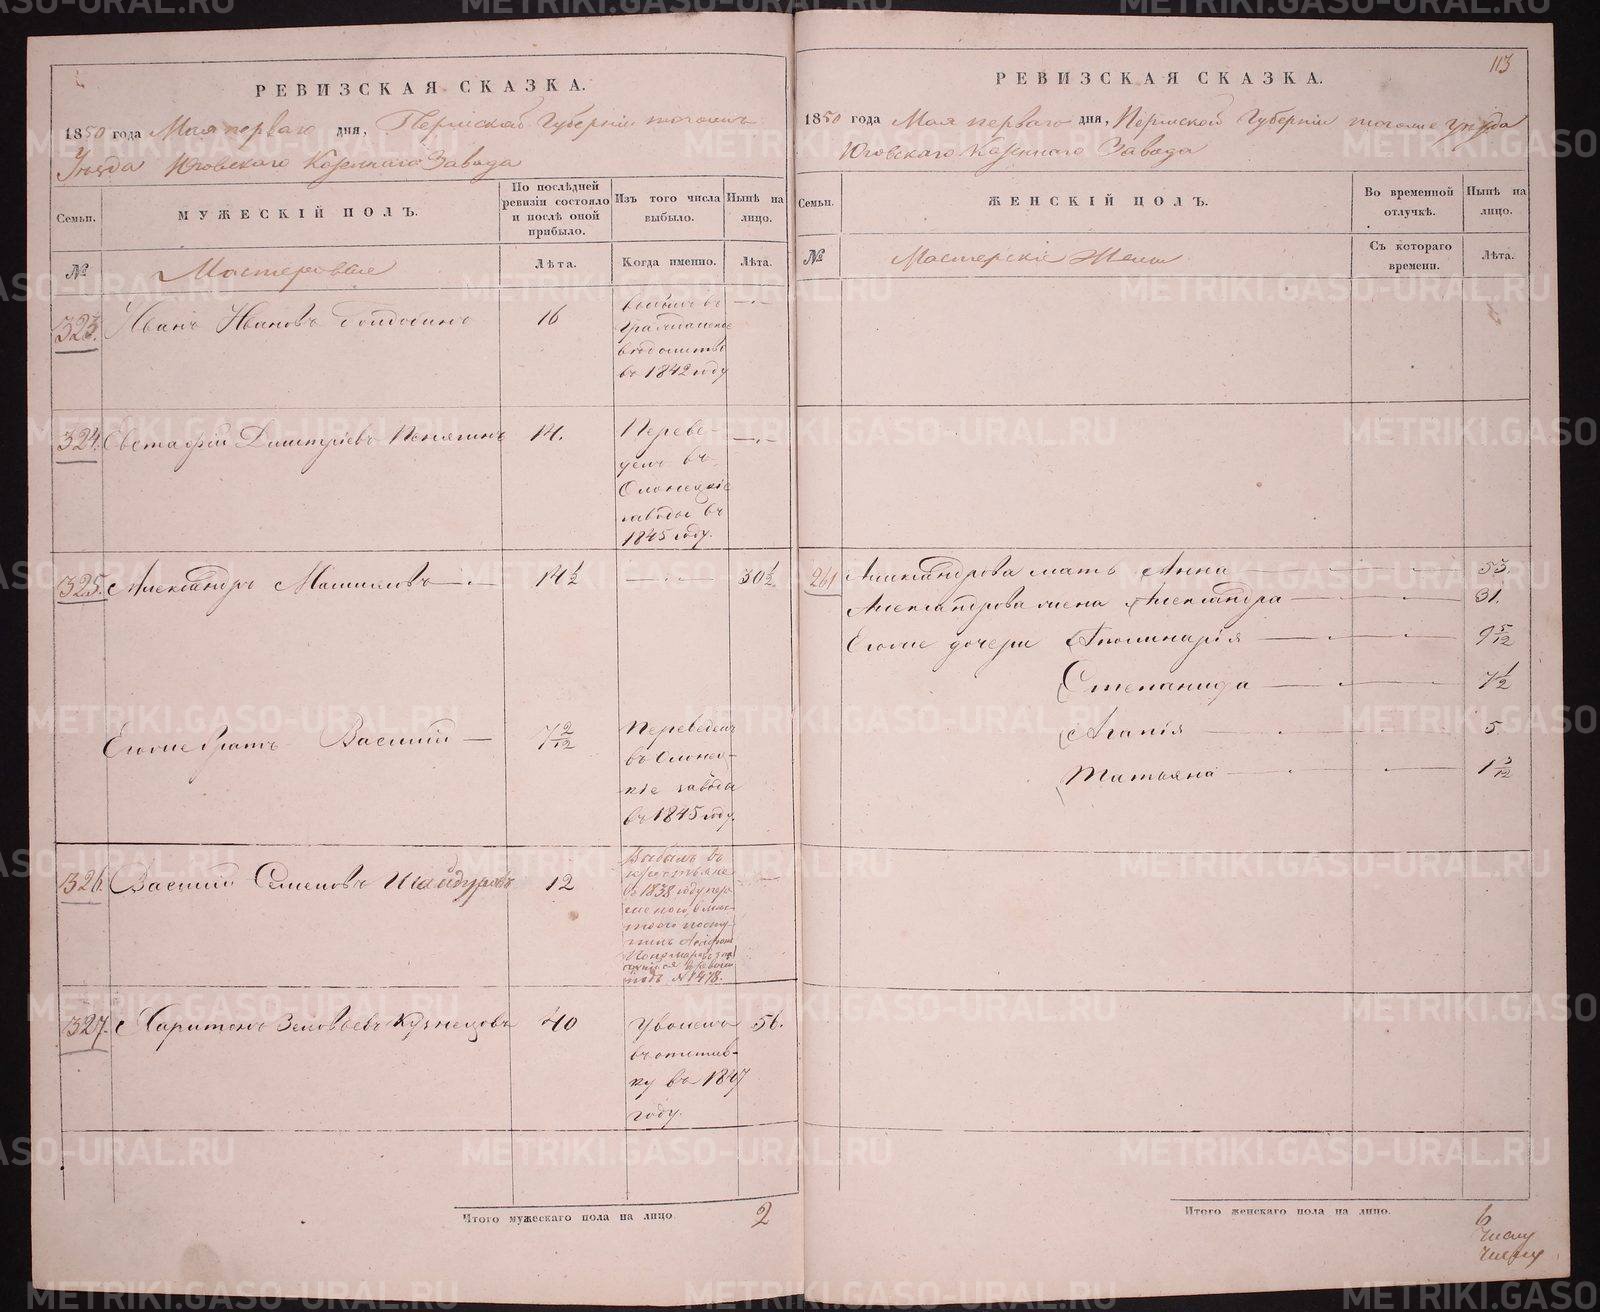 РЕВИЗСКАЯ СКАЗКА.
1850 года Мая перваго дня, Пермской Губернiи тогоже
Уѣзда Юговскаго Казеннаго Завода
Семьи.
МУЖЕСКIЙ ПОЛЪ.
По послѣдней ревизiи состояло и послѣ оной прибыло.
Изъ того числа выбыло.
Нынѣ на лицо.
№
Мастеровые
Лѣта.
Когда именно.
Лѣта.
323. Иванъ Ивановъ 16
въ
Гражданское
вѣдомство
въ 1842 году
324. Евстафiй Димитрiевъ Пенягинъ 14.
Переве-
денъ въ
Олонецкiе
заводы въ
1845 году.
325. Александръ 14½ 30½
Егоже братъ Василiй 7 2/12
Переведенъ
въ Олонец-
кiе заводы
въ 1845 году.
326. Василiй Семеновъ Шайдуровъ 12
Выбылъ въ
крестьяне
въ 1838 году
№ 1478.
327. Харитонъ Кузнецовъ 40 56.
Уволенъ
въ отстав-
ку въ 1847
году.
Итого мужескаго пола на лицо. 2
113
РЕВИЗСКАЯ СКАЗКА.
1850 года Мая перваго дня, Пермской Губернiи тогоже Уѣзда
Юговскаго Казеннаго Завода
Семьи.
ЖЕНСКIЙ ПОЛЪ.
Во временной отлучкѣ.
Нынѣ на лицо.
№
Мастерскiе Жены
Съ котораго времени.
Лѣта.
261 Александрова мать Анна 53.
Александрова жена Александра 31.
Егоже дочери Аполинарiя 9 5/12
Степанида 7½
Агапiя 5.
Татьяна 1 3/12
Итого женскаго пола на лицо. 6